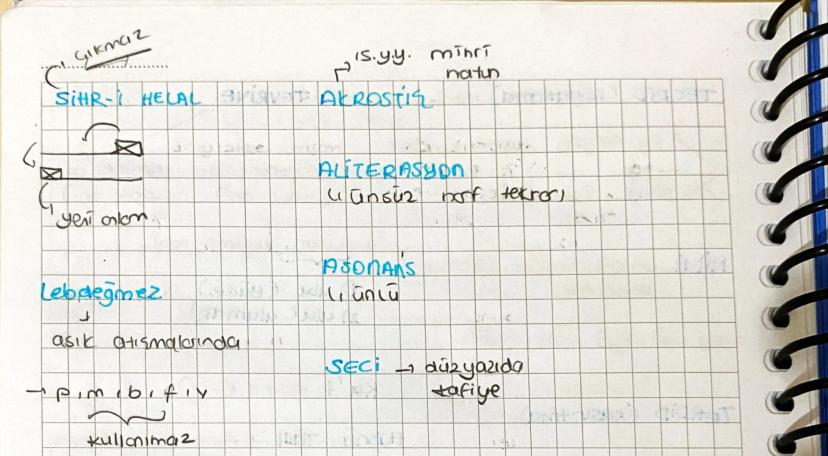 çıkmaz
SİHR-İ HELAL
yeni anlam
Lebdeğmez
aşık atışmalarında
→ p, m, b, f, v
kullanılmaz
15.y.y. mihri
hatun
AKROSTİŞ
ALİTERASYON
ünsüz harf tekrarı
ASONANS
ünlü
SECİ → düzyazıda
kafiye